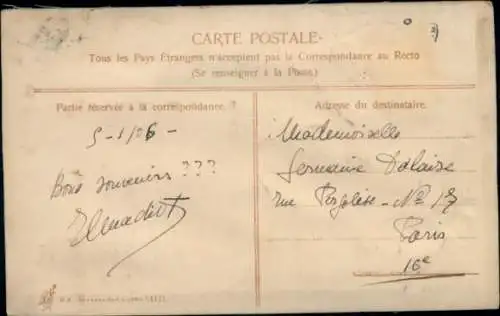 CARTE POSTALE
Tous les Pays Étrangers n'acceptent pas la Correspondance au Recto
(Se renseigner à la Poste)
Partie réservée à la correspondance.
5-1/06-
Bons souvenirs ???
Adresse du destinataire.
Mademoiselle
Germaine Dalaise
rue Pergolèse - No 17
Paris
16e